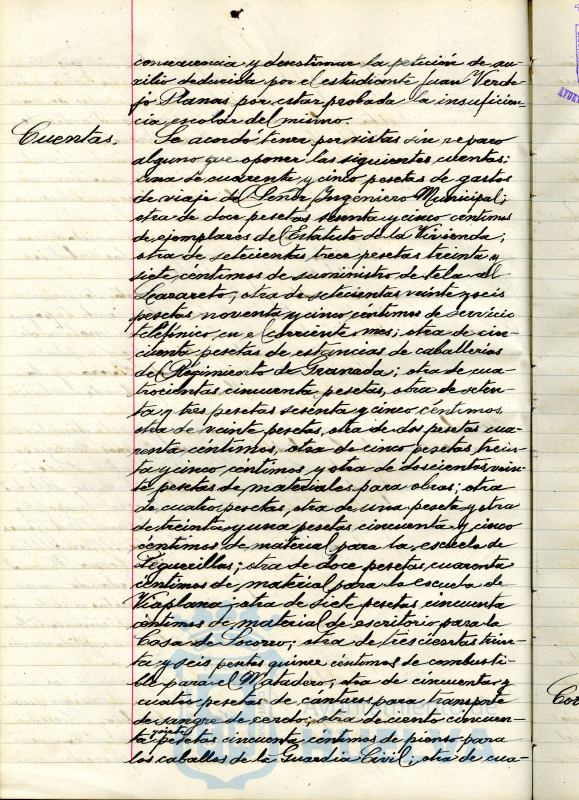 consecuencia y desestimar la petición de au-
xilio deducida por el estudiante Juan Verde-
jo Planas por estar probada la insuficien-
cia escolar del mismo.
Cuentas.
Se acordó tener por vistas sin reparo
alguno que oponer las siguientes cuentas:
una de cuarenta y cinco pesetas de gastos
de viaje del Señor Ingeniero Municipal;
otra de doce pesetas setenta y cinco céntimos
de ejemplares del Estatuto de la Vivienda;
otra de setecientas trece pesetas treinta y
siete céntimos de suministro de tela al
Lazareto; otra de setecientas veinte y seis
pesetas noventa y cinco céntimos de servicio
telefónico en el corriente mes; otra de cin-
cuenta pesetas de estancias de caballerías
de Regimiento de Granada; otra de cua-
trocientas cincuenta pesetas, otra de seten-
ta y tres pesetas sesenta y cinco céntimos
otra de veinte pesetas, otra de dos pesetas cua-
renta céntimos, otra de cinco pesetas trein-
ta y cinco céntimos y otra de doscientas vein-
te pesetas de materiales para obras; otra
de cuatro pesetas, otra de una peseta y otra
de treinta y una pesetas cincuenta y cinco
céntimos de material para la escuela de
Tequerillas; otra de doce pesetas cuarenta
céntimos de material para la escuela de
Viaplana; otra de siete pesetas cincuenta
céntimos de material de escritorio para la
Casa de Socorro; otra de trescientas trein-
ta y seis pesetas quince céntimos de combusti-
ble para el Matadero; otra de cincuenta y
cuatro pesetas de cántaros para transporte
de sangre de cerdo; otra de ciento cincuen-
ta pesetas cincuenta céntimos de pienso para
los caballos de la Guardia Civil; otra de cua-
Ayuntamiento de
HUELVA